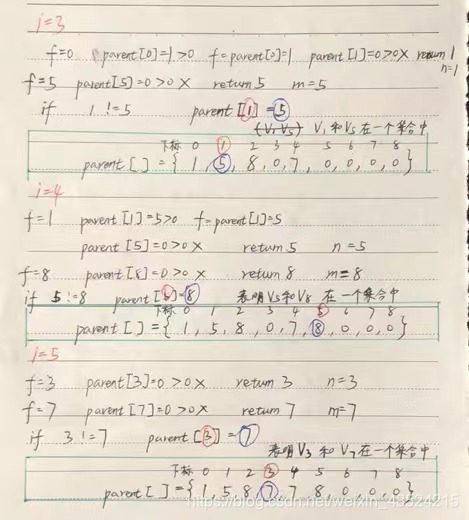 i=3
f=0 parent[0]=1>0 f=parent[0]=1 parent[1]=0>0× return 1
n=1
f=5 parent[5]=0>0× return 5 m=5
if 1!=5 parent[1]=5
(V1,V5) V1和V5在一个集合中
下标 0 1 2 3 4 5 6 7 8
parent[]={1,5,8,0,7,0,0,0,0}
i=4
f=1 parent[1]=5>0 f=parent[1]=5
parent[5]=0>0× return 5 n=5
f=8 parent[8]=0>0× return 8 m=8
if 5!=8 parent[5]=8 表明V5和V8在一个集合中
下标 0 1 2 3 4 5 6 7 8
parent[]={1,5,8,0,7,8,0,0,0}
i=5
f=3 parent[3]=0>0× return 3 n=3
f=7 parent[7]=0>0× return 7 m=7
if 3!=7 parent[3]=7
表明V3和V7在一个集合中
下标 0 1 2 3 4 5 6 7 8
parent[]={1,5,8,7,7,8,0,0,0}
https://blog.csdn.net/weixin_43324215